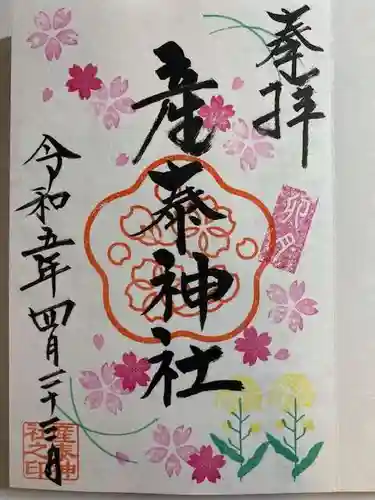 奉拝
卯月
産泰神社
令和五年四月二十三日
産泰神
社之印